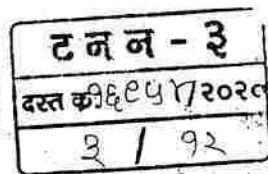 ट न न - ३
दस्त क्र १६९५४/२०२०
३ / १२